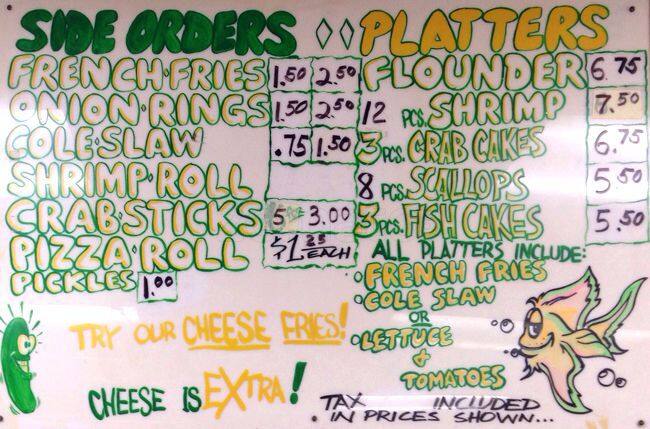 SIDE ORDERS
FRENCH FRIES 1.50 2.50
ONION RINGS 1.50 2.50
COLE SLAW .75 1.50
SHRIMP ROLL
CRAB STICKS 5 3.00
PIZZA ROLL $1.25 EACH
PICKLES 1.00
TRY OUR CHEESE FRIES!
CHEESE IS EXTRA!
PLATTERS
FLOUNDER 6.75
12 PCS. SHRIMP 7.50
3 PCS. CRAB CAKES 6.75
8 PCS. SCALLOPS 5.50
3 PCS. FISH CAKES 5.50
ALL PLATTERS INCLUDE:
FRENCH FRIES
COLE SLAW
OR
LETTUCE
+
TOMATOES
TAX INCLUDED
IN PRICES SHOWN...